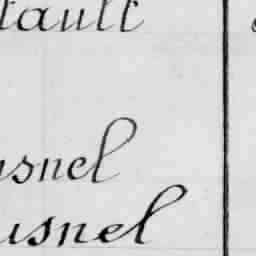 tault
usnel
usnel